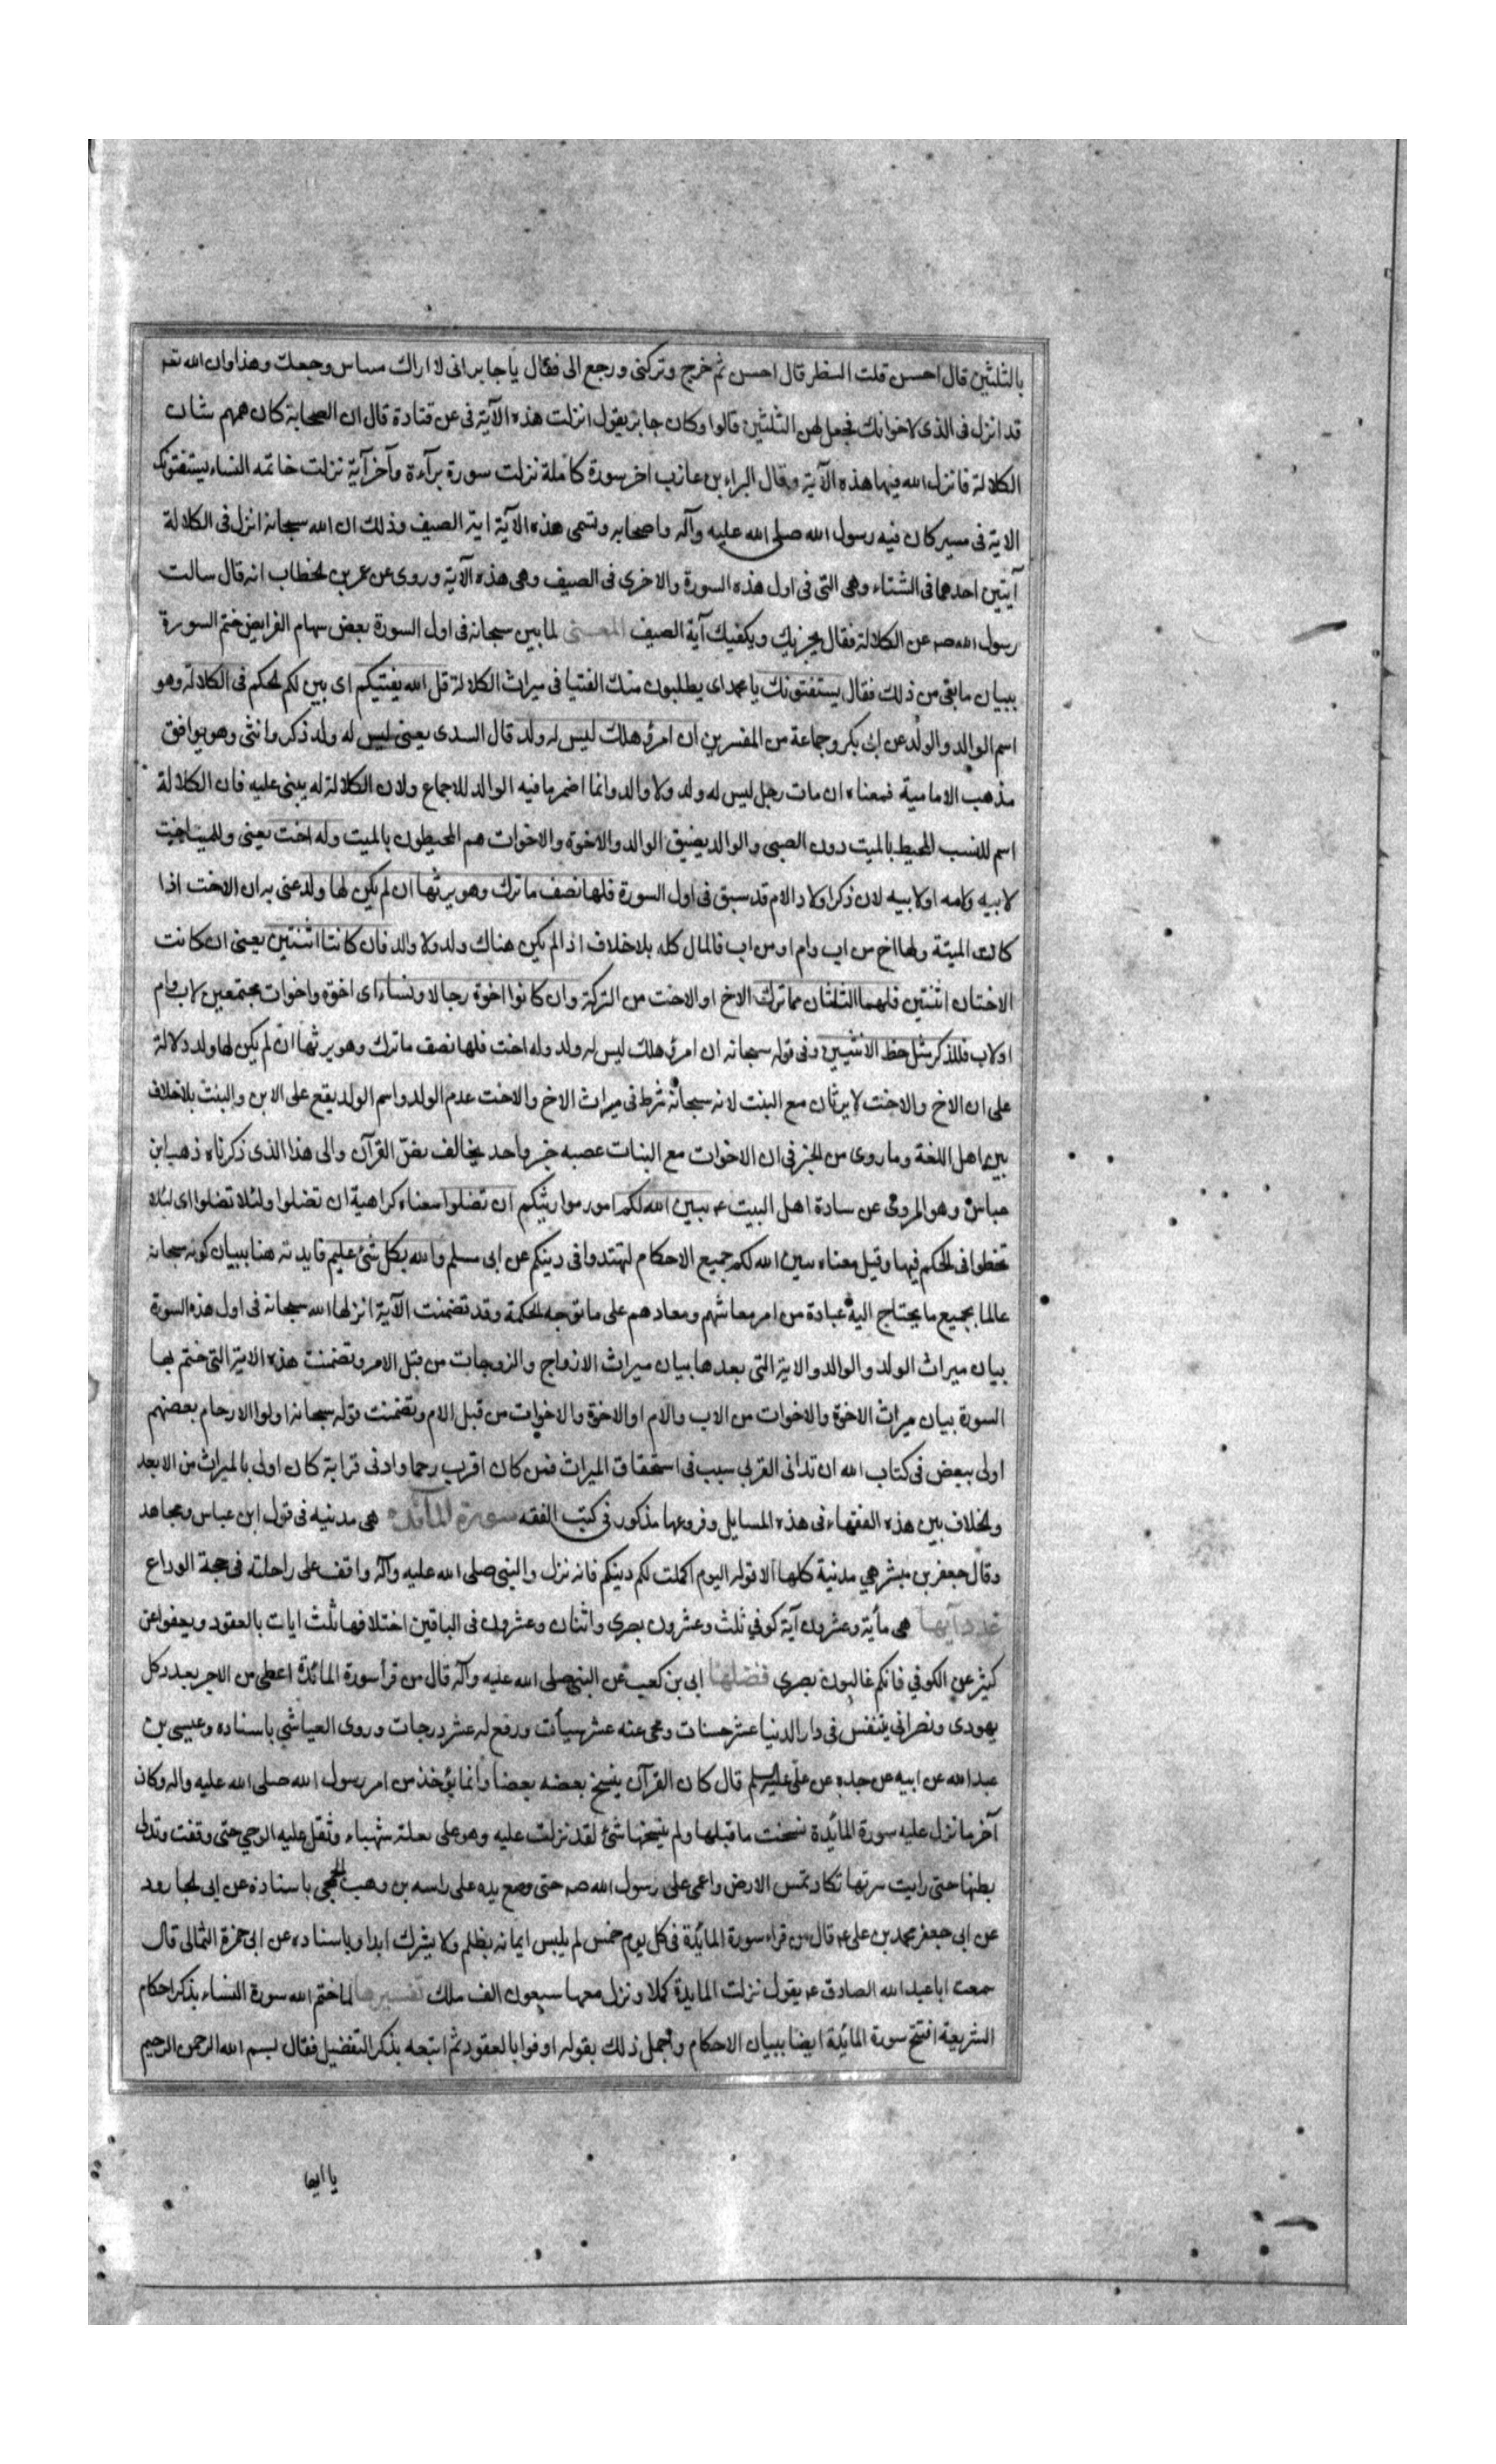 بالثلثين قال احسن قلت الشطر قال احسن ثم خرج وتركنى ورجع الى فقال يا جابر انى لا اراك ميتا من وجعك وهذا وان الله تعم
قد انزل فى الذى لاخوانك فجعل لهن الثلثين قالوا وكان جابر يقول انزلت هذه الآية فى عن قتادة قال ان الصحابة كان همهم شان
الكلالة فانزل الله فيها هذه الآية وقال البراء بن عازب اخر سورة كاملة نزلت سورة برآءة وآخر آية نزلت خاتمه النساء يستفتونك
الاية فى مسير كان فيه رسول الله صلى الله عليه وآله واصحابه وتسمى هذه الآية اية الصيف وذلك ان الله سبحانه انزل فى الكلالة
آيتين احدهما فى الشتاء وهى التى فى اول هذه السورة والاخرى فى الصيف وهى هذه الآية وروى عن عمر بن لخطاب انه قال سالت
رسول الله صم عن الكلالة فقال يجزيك ويكفيك آية الصيف المعـنى لما بين سبحانه فى اول السورة بعض سهام الفرايض ختم السورة
ببيان ما بقى من ذلك فقال يستفتونك يا محمد اى يطلبون منك الفتيا فى ميراث الكلالة قل الله يفتيكم اى يبين لكم لحكم فى الكلالة وهو
اسم الوالد والولد عن ابى بكر وجماعة من المفسرين ان امرؤ هلك ليس له ولد قال السدى يعنى ليس له ولد ذكر وانثى وهو يوافق
مذهب الامامية فمعناه ان مات رجل ليس له ولد ولا والد وانما اضمرها فيه الوالد للاجماع ولان الكلالة له يبنى عليه فان الكلالة
اسم للنسب المحيط بالميت دون الصبى والوالد يضيق الوالد والاخوة والاخوات هم المحيطون بالميت وله اخت يعنى وللميت اخت
لابيه وامه او لابيه لان ذكر اولاد الام قد سبق فى اول السورة فلها نصف ما ترك وهو يرثها ان لم يكن لها ولد عنى به ان الاخت اذا
كانت الميتة ولها اخ من اب وام او من اب فالمال كله بلا خلاف اذا لم يكن هناك ولد ولا والد فان كانتا اثنتين يعنى ان كانت
الاختان اثنتين فلهما الثلثان مما ترك الاخ او الاخت من التركة وان كانوا اخوة رجالا ونساء اى اخوة واخوات مجتمعين لاب وام
او لاب فللذكر مثل حظ الانثيين وفى قوله سبحانه ان امرؤ هلك ليس له ولد وله اخت فلها نصف ما ترك وهو يرثها ان لم يكن لها ولد دلالة
على ان الاخ والاخت لا يرثان مع البنت لانه سبحانه شرط فى ميراث الاخ والاخت عدم الولد واسم الولد يقع على الابن والبنت بلا خلاف
بين اهل اللغة وما روى من الخبر فى ان الاخوات مع البنات عصبه خبر واحد يخالف نص القرآن والى هذا الذى ذكرناه ذهب ابن
عباس وهو المروى عن سادة اهل البيت عم يبين الله لكم امور مواريثكم ان تضلوا معناه كراهية ان تضلوا ولئلا تضلوا اى لئلا
تخطوا فى الحكم فيها وقيل معناه يبين الله لكم جميع الاحكام لتهتدوا فى دينكم عن ابى مسلم والله بكل شئ عليم فايدته هنا بيان كونه سبحانه
عالما بجميع ما يحتاج اليه عبادة من امر معاشهم ومعادهم على ما توجه الحكمة وقد تضمنت الآية انزلها الله سبحانه فى اول هذه السورة
بيان ميراث الولد والوالد والاية التى بعدها بيان ميراث الازواج والزوجات من قبل الام وتضمنت هذه الاية التى ختم بها
السورة بيان ميراث الاخوة والاخوات من الاب والام او الاخوة والاخوات من قبل الام وتضمنت قوله سبحانه اولوا الارحام بعضهم
اولى ببعض فى كتاب الله ان تدانى القربى سبب فى استحقاق الميراث فمن كان اقرب رحما وادنى قرابة كان اولى بالميراث من الابعد
ولخلاف بين هذه الفقهاء فى هذه المسايل وفروعها مذكور فى كتب الفقه سورة المائده هى مدنيه فى قول ابن عباس ومجاهد
وقال جعفر بن مبشر هى مدنية كلها الا قوله اليوم اكملت لكم دينكم فانه نزل والنبى صلى الله عليه وآله واقف على راحلته فى حجة الوداع
عدد آيها هى مأية وعشرون آية كوفى ثلث وعشرون بصرى واثنان وعشرون فى الباقين اختلافها ثلث ايات بالعقود ويعفوا عن
كثير عن الكوفى فانكم غالبون بصرى فضلها ابى بن كعب عن النبى صلى الله عليه وآله قال من قرأ سورة المائدة اعطى من الاجر بعدد كل
يهودى ونصرانى يتنفس فى دار الدنيا عشر حسنات ومحى عنه عشر سيآت ورفع له عشر درجات وروى العياشى باسناده وعيسى بن
عبد الله عن ابيه عن جده عن على عليه السلم قال كان القرآن ينسخ بعضه بعضا وانما يؤخذ من امر رسول الله صلى الله عليه واله وكان
آخر ما نزل عليه سورة المائدة نسخت ما قبلها ولم ينسخها شئ لقد نزلت عليه وهو على بغلة شهباء وثقل عليه الوحى حتى وقفت وتدلى
بطنها حتى رايت سرتها تكاد تمس الارض واغمى على رسول الله صم حتى وضع يده على راسه بن وهب الجمحى باسناده عن ابى لجارود
عن ابى جعفر محمد بن على عم قال من قراء سورة المائدة فى كل يوم خمس لم يلبس ايمانه بظلم ولا يشرك ابدا وباسناده عن ابى حمزة الثمالى قال
سمعت ابا عبد الله الصادق عم يقول نزلت المايدة كملا ونزل معها سبعون الف ملك تفسيرها لما ختم الله سورة النساء بذكر احكام
الشريعة افتتح سورة المائدة ايضا ببيان الاحكام واجمل ذلك بقوله اوفوا بالعقود ثم اتبعه بذكر التفضيل فقال بسم الله الرحمن الرحيم
يا ايها